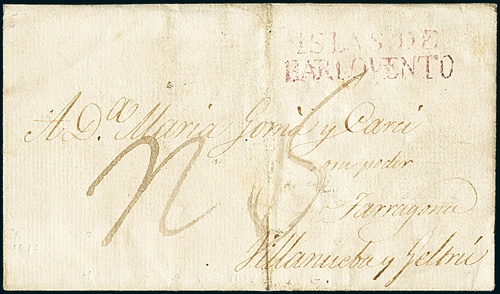 ISLAS DE
BARLOVENTO
A D.ª Maria Gomá y Carci
Tarragona
Villanueba y Geltrú